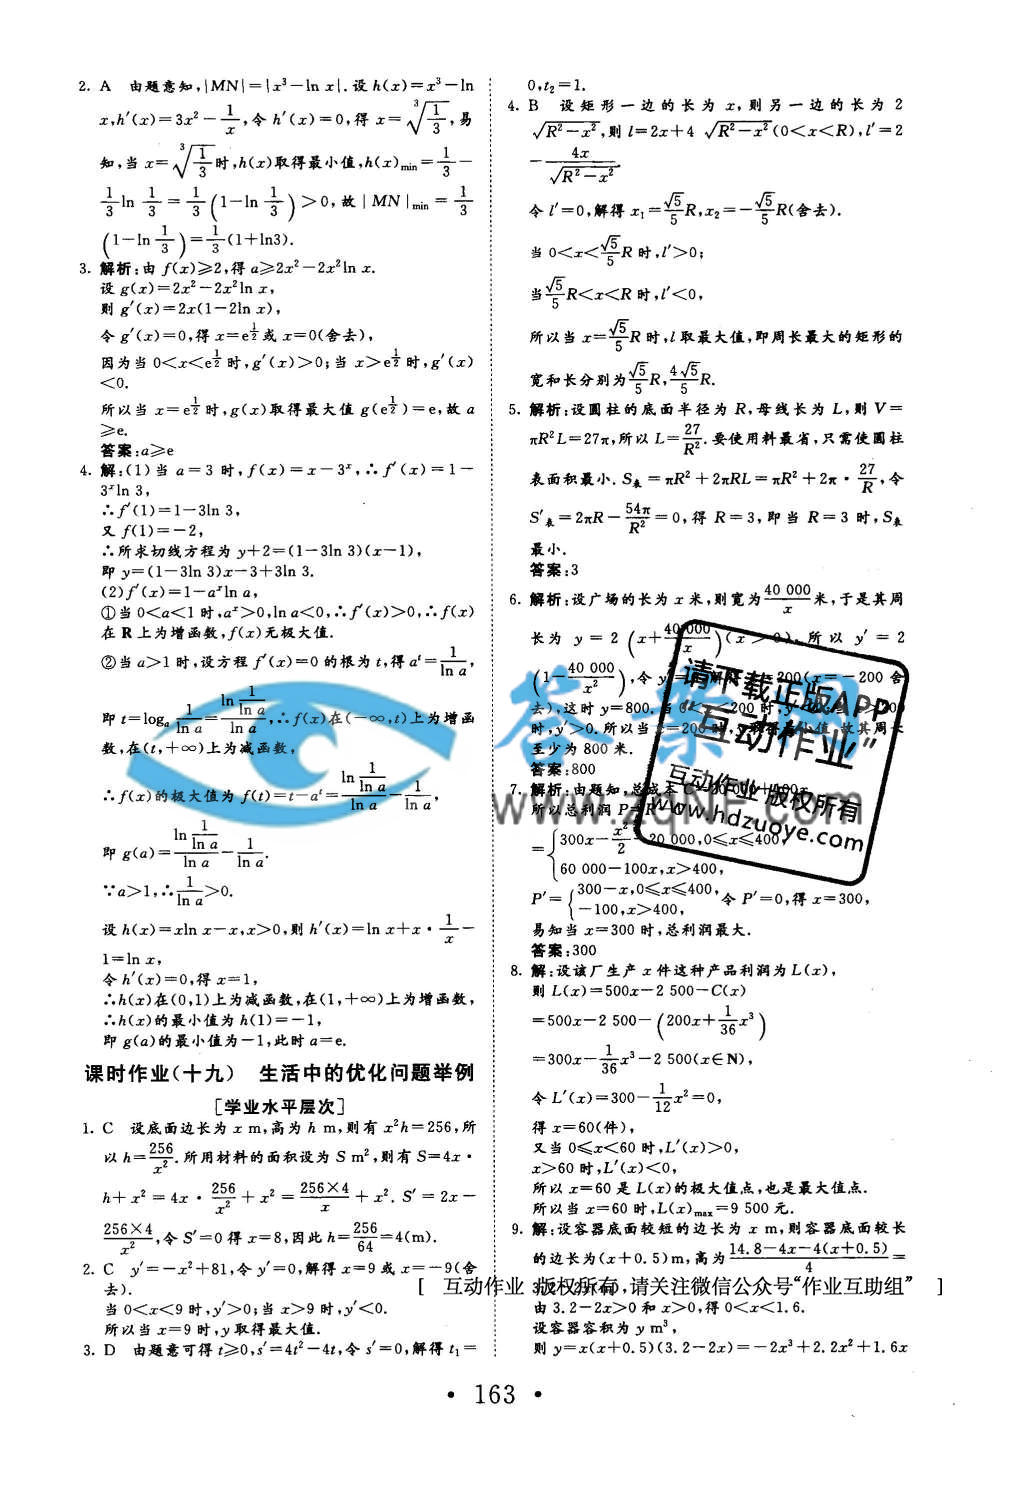 2. A 由题意知,|MN|=|x³-ln x|.设 h(x)=x³-ln
x,h′(x)=3x²-1/x,令 h′(x)=0,得 x=∛(1/3),易
知,当 x=∛(1/3)时,h(x)取得最小值,h(x)min=1/3-
1/3 ln 1/3=1/3(1-ln 1/3)>0,故|MN|min=1/3
(1-ln 1/3)=1/3(1+ln3).
3. 解析:由 f(x)≥2,得 a≥2x²-2x²ln x.
设 g(x)=2x²-2x²ln x,
则 g′(x)=2x(1-2ln x),
令 g′(x)=0,得 x=e^(1/2)或 x=0(舍去),
因为当 0<x<e^(1/2)时,g′(x)>0;当 x>e^(1/2)时,g′(x)
<0.
所以当 x=e^(1/2)时,g(x)取得最大值 g(e^(1/2))=e,故 a
≥e.
答案:a≥e
4. 解:(1)当 a=3 时,f(x)=x-3ˣ,∴f′(x)=1-
3ˣln 3,
∴f′(1)=1-3ln 3,
又 f(1)=-2,
∴所求切线方程为 y+2=(1-3ln 3)(x-1),
即 y=(1-3ln 3)x-3+3ln 3.
(2)f′(x)=1-aˣln a,
①当 0<a<1 时,aˣ>0,ln a<0,∴f′(x)>0,∴f(x)
在 R 上为增函数,f(x)无极大值.
②当 a>1 时,设方程 f′(x)=0 的根为 t,得 aᵗ=1/ln a,
即 t=logₐ 1/ln a=(ln 1/ln a)/ln a,∴f(x)在(-∞,t)上为增函
数,在(t,+∞)上为减函数,
∴f(x)的极大值为 f(t)=t-aᵗ=(ln 1/ln a)/ln a-1/ln a,
即 g(a)=(ln 1/ln a)/ln a-1/ln a.
∵a>1,∴1/ln a>0.
设 h(x)=xln x-x,x>0,则 h′(x)=ln x+x·1/x-
1=ln x,
令 h′(x)=0,得 x=1,
∴h(x)在(0,1)上为减函数,在(1,+∞)上为增函数,
∴h(x)的最小值为 h(1)=-1,
即 g(a)的最小值为-1,此时 a=e.
课时作业(十九) 生活中的优化问题举例
[学业水平层次]
1. C 设底面边长为 x m,高为 h m,则有 x²h=256,所
以 h=256/x².所用材料的面积设为 S m²,则有 S=4x·
h+x²=4x·256/x²+x²=256×4/x+x². S′=2x-
256×4/x²,令 S′=0 得 x=8,因此 h=256/64=4(m).
2. C y′=-x²+81,令 y′=0,解得 x=9 或 x=-9(舍
去).
当 0<x<9 时,y′>0;当 x>9 时,y′<0.
所以当 x=9 时,y 取得最大值.
3. D 由题意可得 t≥0,s′=4t²-4t,令 s′=0,解得 t₁=
0,t₂=1.
4. B 设矩形一边的长为 x,则另一边的长为 2
√(R²-x²),则 l=2x+4√(R²-x²)(0<x<R),l′=2
-4x/√(R²-x²)
令 l′=0,解得 x₁=√5/5 R,x₂=-√5/5 R(舍去).
当 0<x<√5/5 R 时,l′>0;
当√5/5 R<x<R 时,l′<0,
所以当 x=√5/5 R 时,l 取最大值,即周长最大的矩形的
宽和长分别为√5/5 R,4√5/5 R.
5. 解析:设圆柱的底面半径为 R,母线长为 L,则 V=
πR²L=27π,所以 L=27/R².要使用料最省,只需使圆柱
表面积最小. S表=πR²+2πRL=πR²+2π·27/R,令
S′表=2πR-54π/R²=0,得 R=3,即当 R=3 时,S表
最小.
答案:3
6. 解析:设广场的长为 x 米,则宽为40 000/x米,于是其周
长为 y=2(x+40 000/x)(x>0),所以 y′=2
(1-40 000/x²),令 y′ 200(x=-200 舍
去),这时 y=800.当 0 200 时,y 200
时,y′>0.所以当 x=200 时,y 取得最小值,故其周长
至少为 800 米.
答案:800
7. 解析:由题知,总成本 C=20 000+100x,
所以总利润 P=R
={300x-x²/2-20 000,0≤x≤400,
60 000-100x,x>400,
P′={300-x,0≤x≤400,
-100,x>400, 令 P′=0,得 x=300,
易知当 x=300 时,总利润最大.
答案:300
8. 解:设该厂生产 x 件这种产品利润为 L(x),
则 L(x)=500x-2 500-C(x)
=500x-2 500-(200x+1/36 x³)
=300x-1/36 x³-2 500(x∈N),
令 L′(x)=300-1/12 x²=0,
得 x=60(件),
又当 0≤x<60 时,L′(x)>0,
x>60 时,L′(x)<0,
所以 x=60 是 L(x)的极大值点,也是最大值点.
所以当 x=60 时,L(x)max=9 500 元.
9. 解:设容器底面较短的边长为 x m,则容器底面较长
的边长为(x+0.5)m,高为(14.8-4x-4(x+0.5))/4=
3.2-2x(m),
由 3.2-2x>0 和 x>0,得 0<x<1.6.
设容器容积为 y m³,
则 y=x(x+0.5)(3.2-2x)=-2x³+2.2x²+1.6x
[ 互动作业 版权所有,请关注微信公众号“作业互助组” ]
· 163 ·
请下载正版APP
“互动作业”
互动作业 版权所有
www.hdzuoye.com
答案网